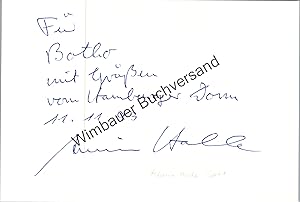 Für
Botho
mit Grüßen
vom Hamburger Dom
11. 11.
Wimbauer Buchversand
Halle